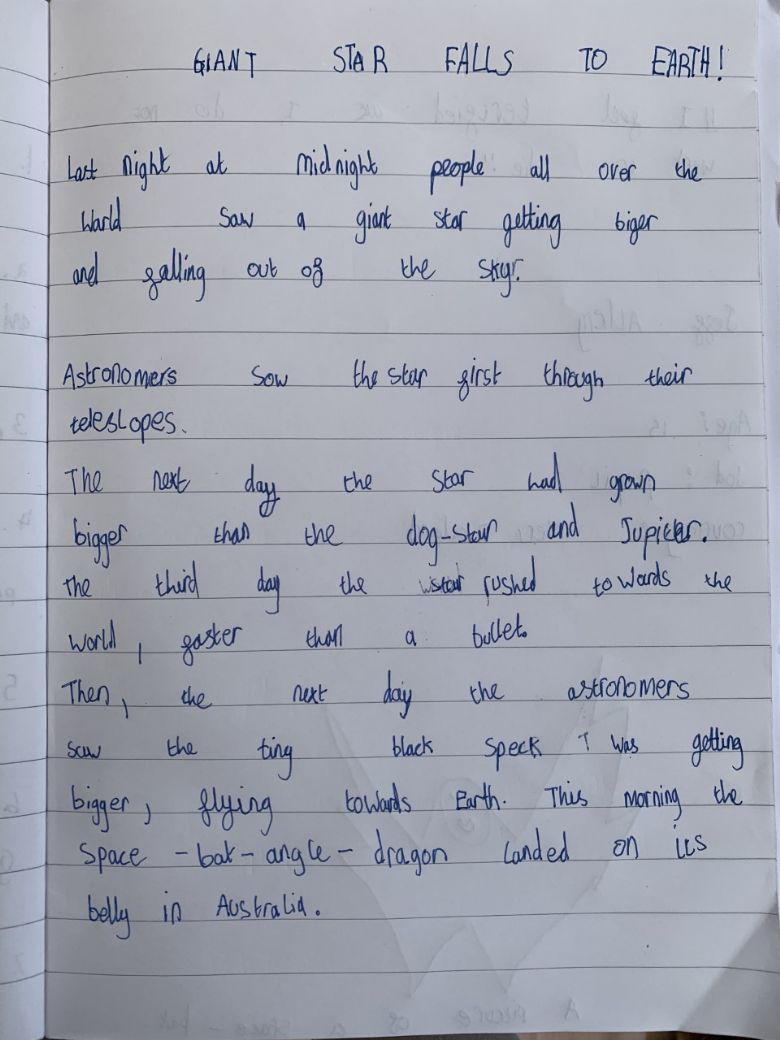 GIANT STAR FALLS TO EARTH!
Last night at midnight people all over the
World saw a giant star getting biger
and falling out of the sky.
Astronomers saw the star first through their
telescopes.
The next day the star had grown
bigger than the dog-star and Jupiter.
The third day the star rushed towards the
world, faster than a bullet.
Then, the next day the astronomers
saw the tiny black speck was getting
bigger, flying towards Earth. This morning the
space-bat-angle-dragon landed on its
belly in Australia.